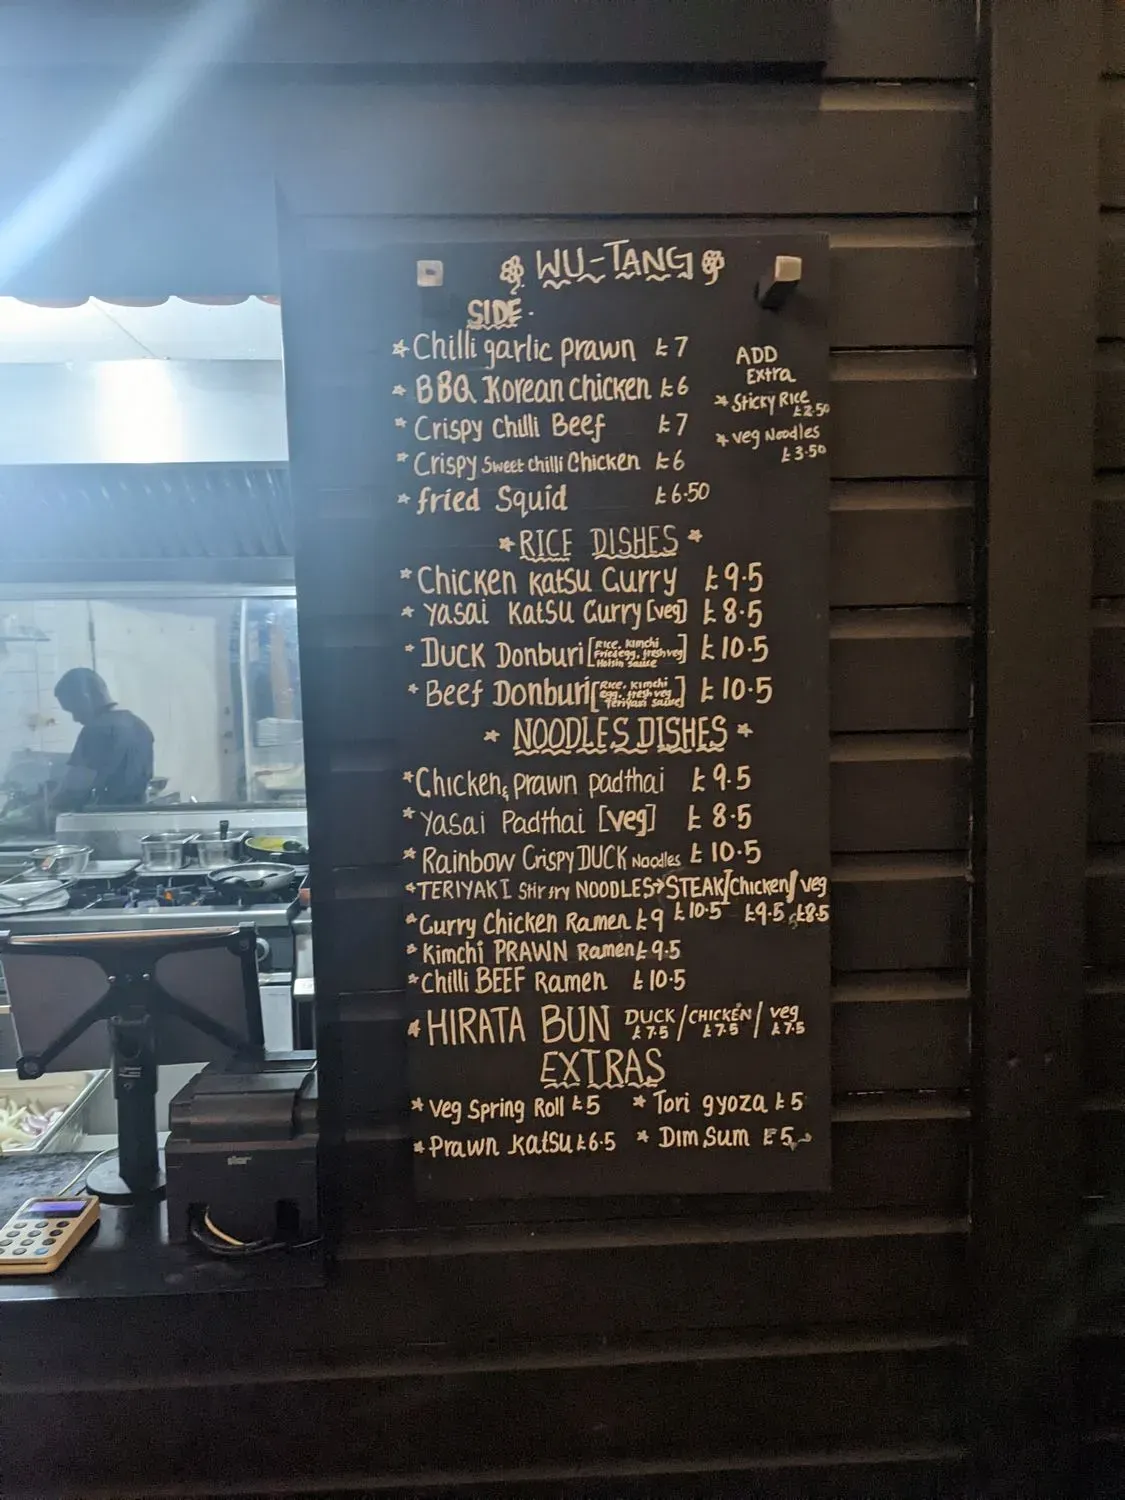 WU-TANG
SIDE.
Chilli garlic prawn £7
BBQ Korean chicken £6
Crispy chilli Beef £7
Crispy Sweet chilli Chicken £6
fried Squid £6.50
ADD
Extra
Sticky Rice
£2.50
veg Noodles
£3.50
RICE DISHES
Chicken Katsu Curry £9.5
Yasai Katsu Curry [veg] £8.5
DUCK Donburi [Rice, Kimchi Fried egg, fresh veg Hoisin sauce] £10.5
Beef Donburi [Rice, Kimchi egg, fresh veg Teriyaki sauce] £10.5
NOODLES DISHES
Chicken & prawn padthai £9.5
Yasai Padthai [veg] £8.5
Rainbow Crispy DUCK Noodles £10.5
TERIYAKI Stir fry NOODLES STEAK/Chicken/veg
£10.5 £9.5 £8.5
Curry Chicken Ramen £9
Kimchi PRAWN Ramen £9.5
Chilli BEEF Ramen £10.5
HIRATA BUN DUCK/CHICKEN/veg
£7.5 £7.5 £7.5
EXTRAS
Veg Spring Roll £5
Tori gyoza £5
Prawn Katsu £6.5
Dim Sum £5
star